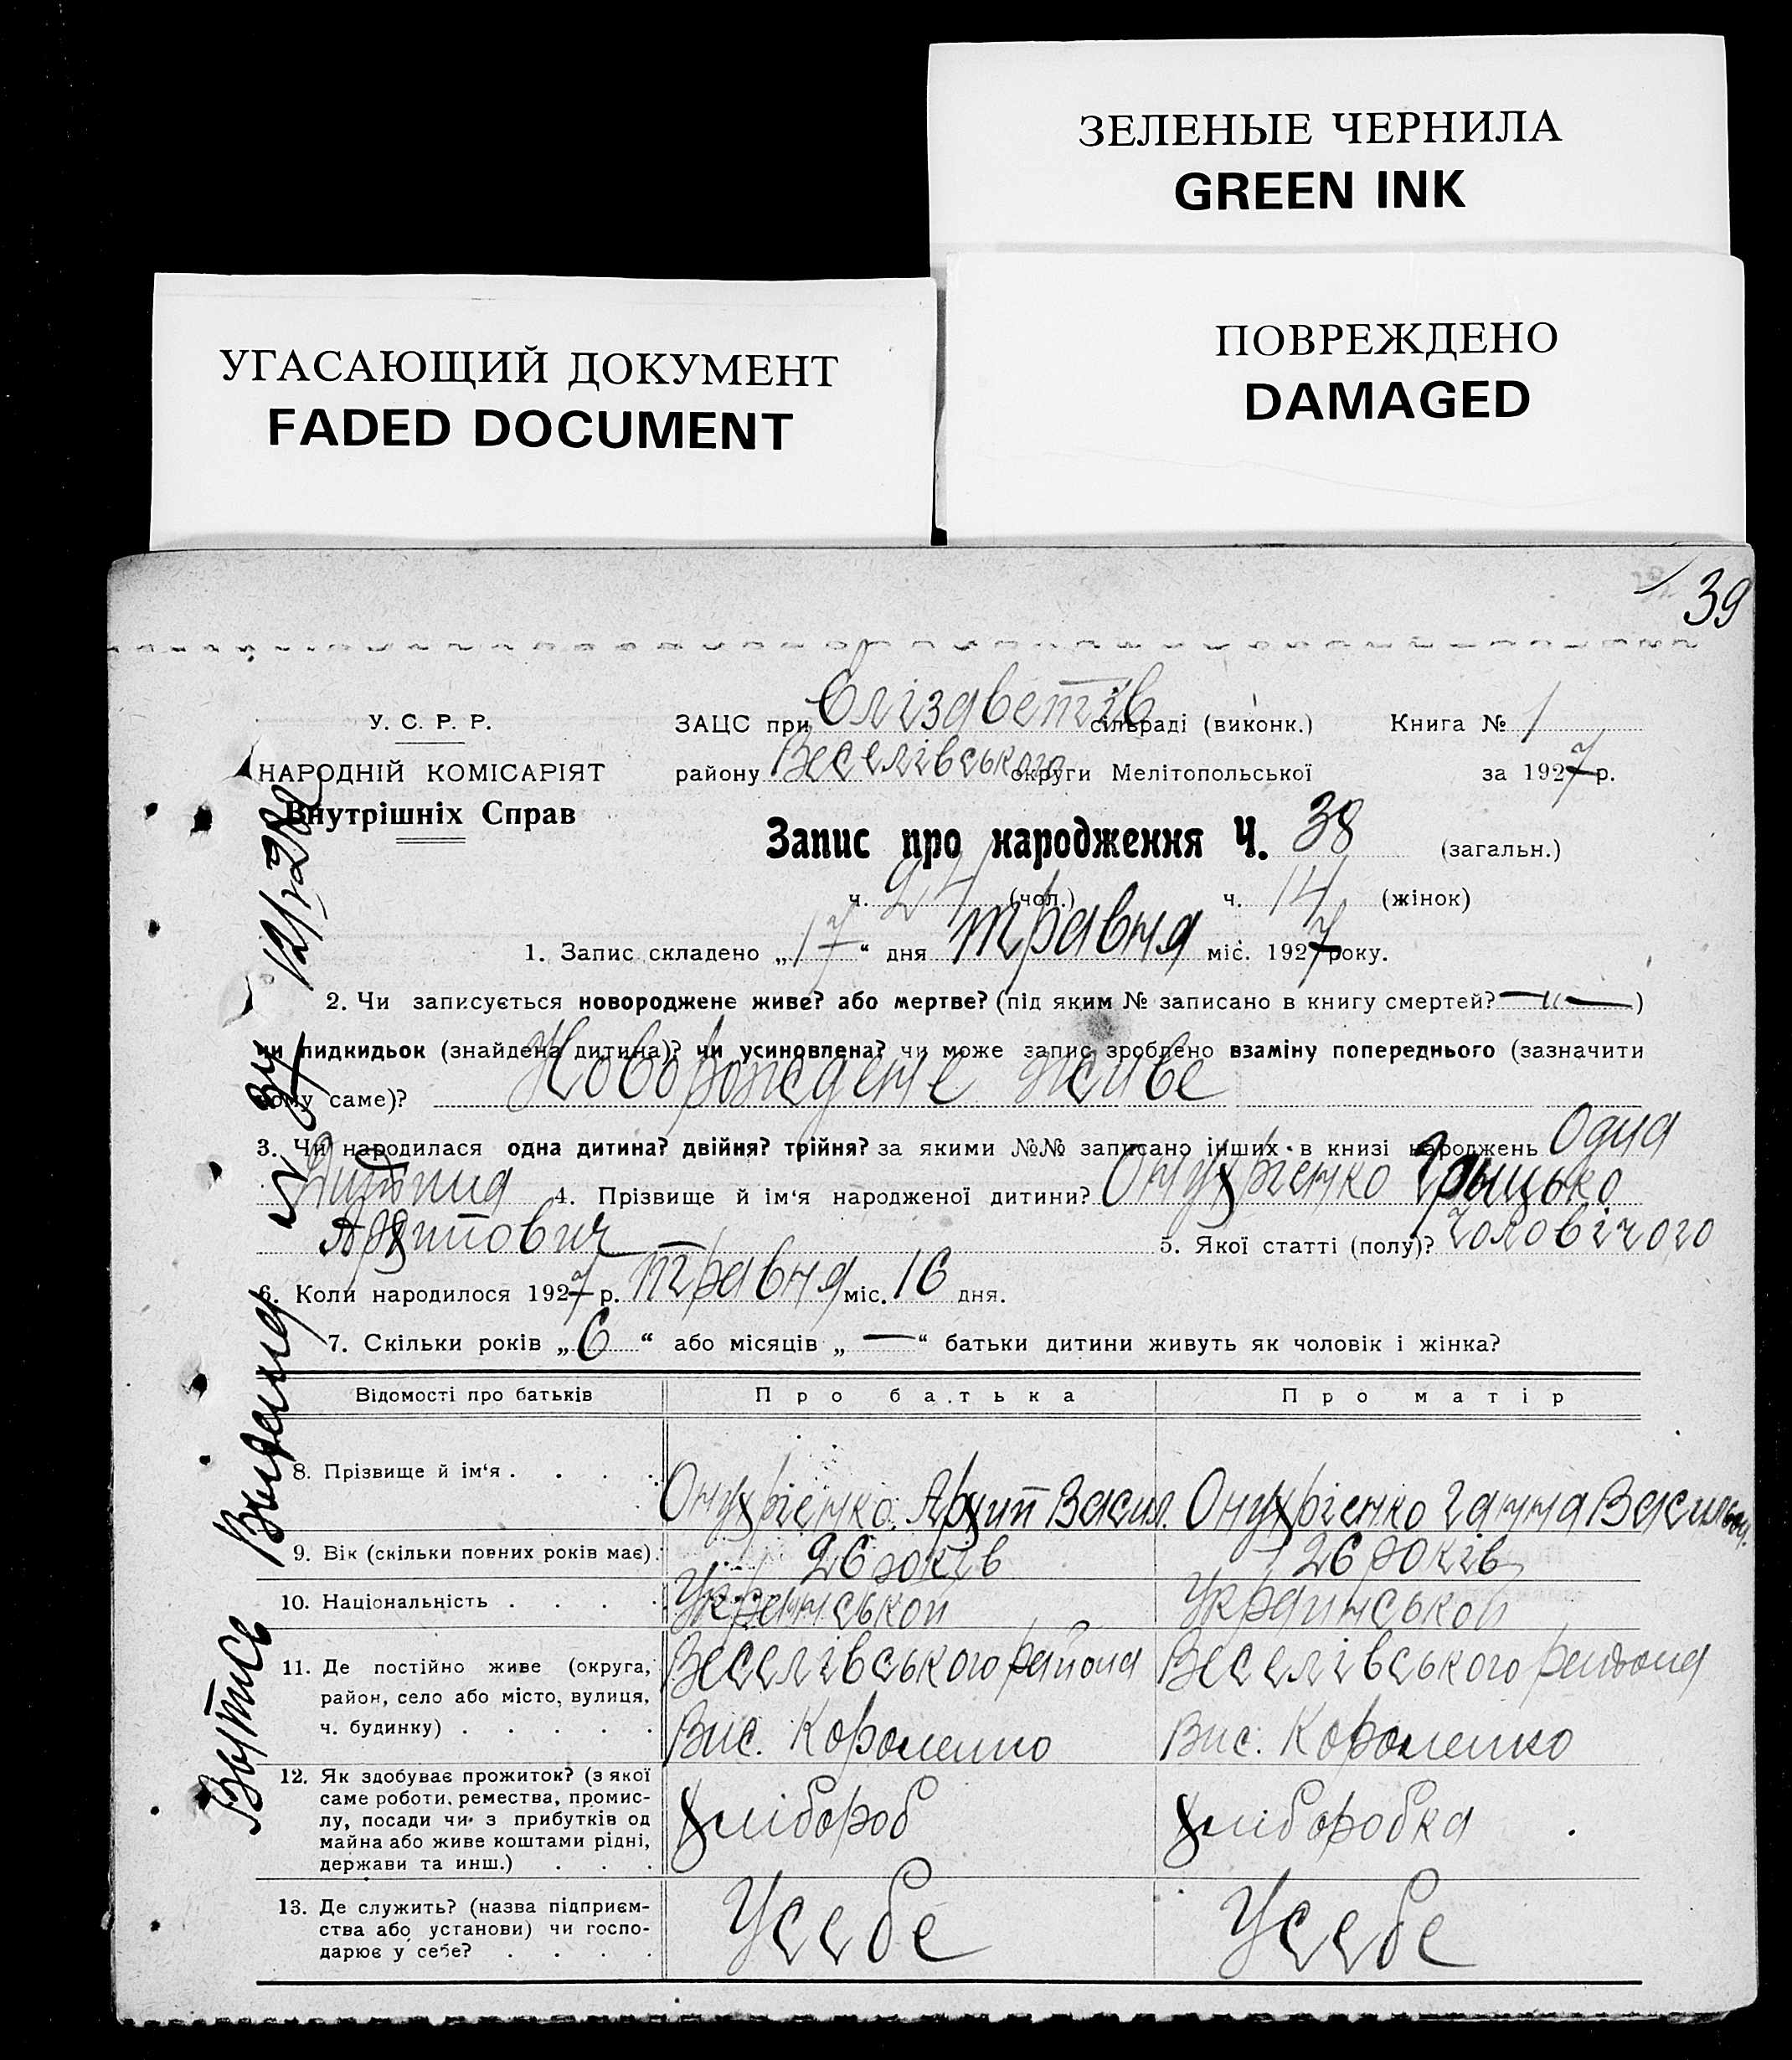 ЗЕЛЕНЫЕ ЧЕРНИЛА
GREEN INK
УГАСАЮЩИЙ ДОКУМЕНТ
FADED DOCUMENT
ПОВРЕЖДЕНО
DAMAGED
39
У. С. Р. Р.
НАРОДНІЙ КОМІСАРІЯТ
Внутрішніх Справ
ЗАЦС при Єлізаветів сільраді (виконк.) Книга № 1
району Веселівського округи Мелітопольської за 1927 р.
Запис про народження Ч. 38 (загальн.)
ч. 24 (чол.) ч. 14 (жінок)
1. Запис складено „17“ дня травня міс. 1927 року.
2. Чи записується новороджене живе? або мертве? (під яким № записано в книгу смертей? —„—)
чи підкидьок (знайдена дитина)? чи усиновлена? чи може запис зроблено взаміну попереднього (зазначити
чому саме)? Новорождене живе
3. Чи народилася одна дитина? двійня? трійня? за якими №№ записано інших в книзі народжень Одна
Дитина 4. Прізвище й ім‘я народженої дитини? Онухрієнко Грыцько
Архипович 5. Якої статті (полу)? Чоловічого
6. Коли народилося 1927 р. травня міс. 16 дня.
7. Скільки років „6“ або місяців „—“ батьки дитини живуть як чоловік і жінка?
Відомості про батьків Про батька Про матір
8. Прізвище й ім‘я . . . . Онухрієнко Архип Васил. Онухрієнко Ганна Васильов.
9. Вік (скільки повних років має). 26 років 26 років
10. Національність . . . . Украинськой Украинськой
11. Де постійно живе (округа, район, село або місто, вулиця, ч. будинку) . . . . .
Веселівського района Веселівського района
Вис. Короленко Вис. Короленко
12. Як здобуває прожиток? (з якої
саме роботи, ремества, промис-
лу, посади чи з прибутків од
майна або живе коштами рідні,
держави та инш.) . . .
Хлібороб Хлiборобка
13. Де служить? (назва підприєм-
ства або установи) чи госпо-
дарює у себе? . . . .
У себе У себе
Выпись Выдана № 34 12/I-28